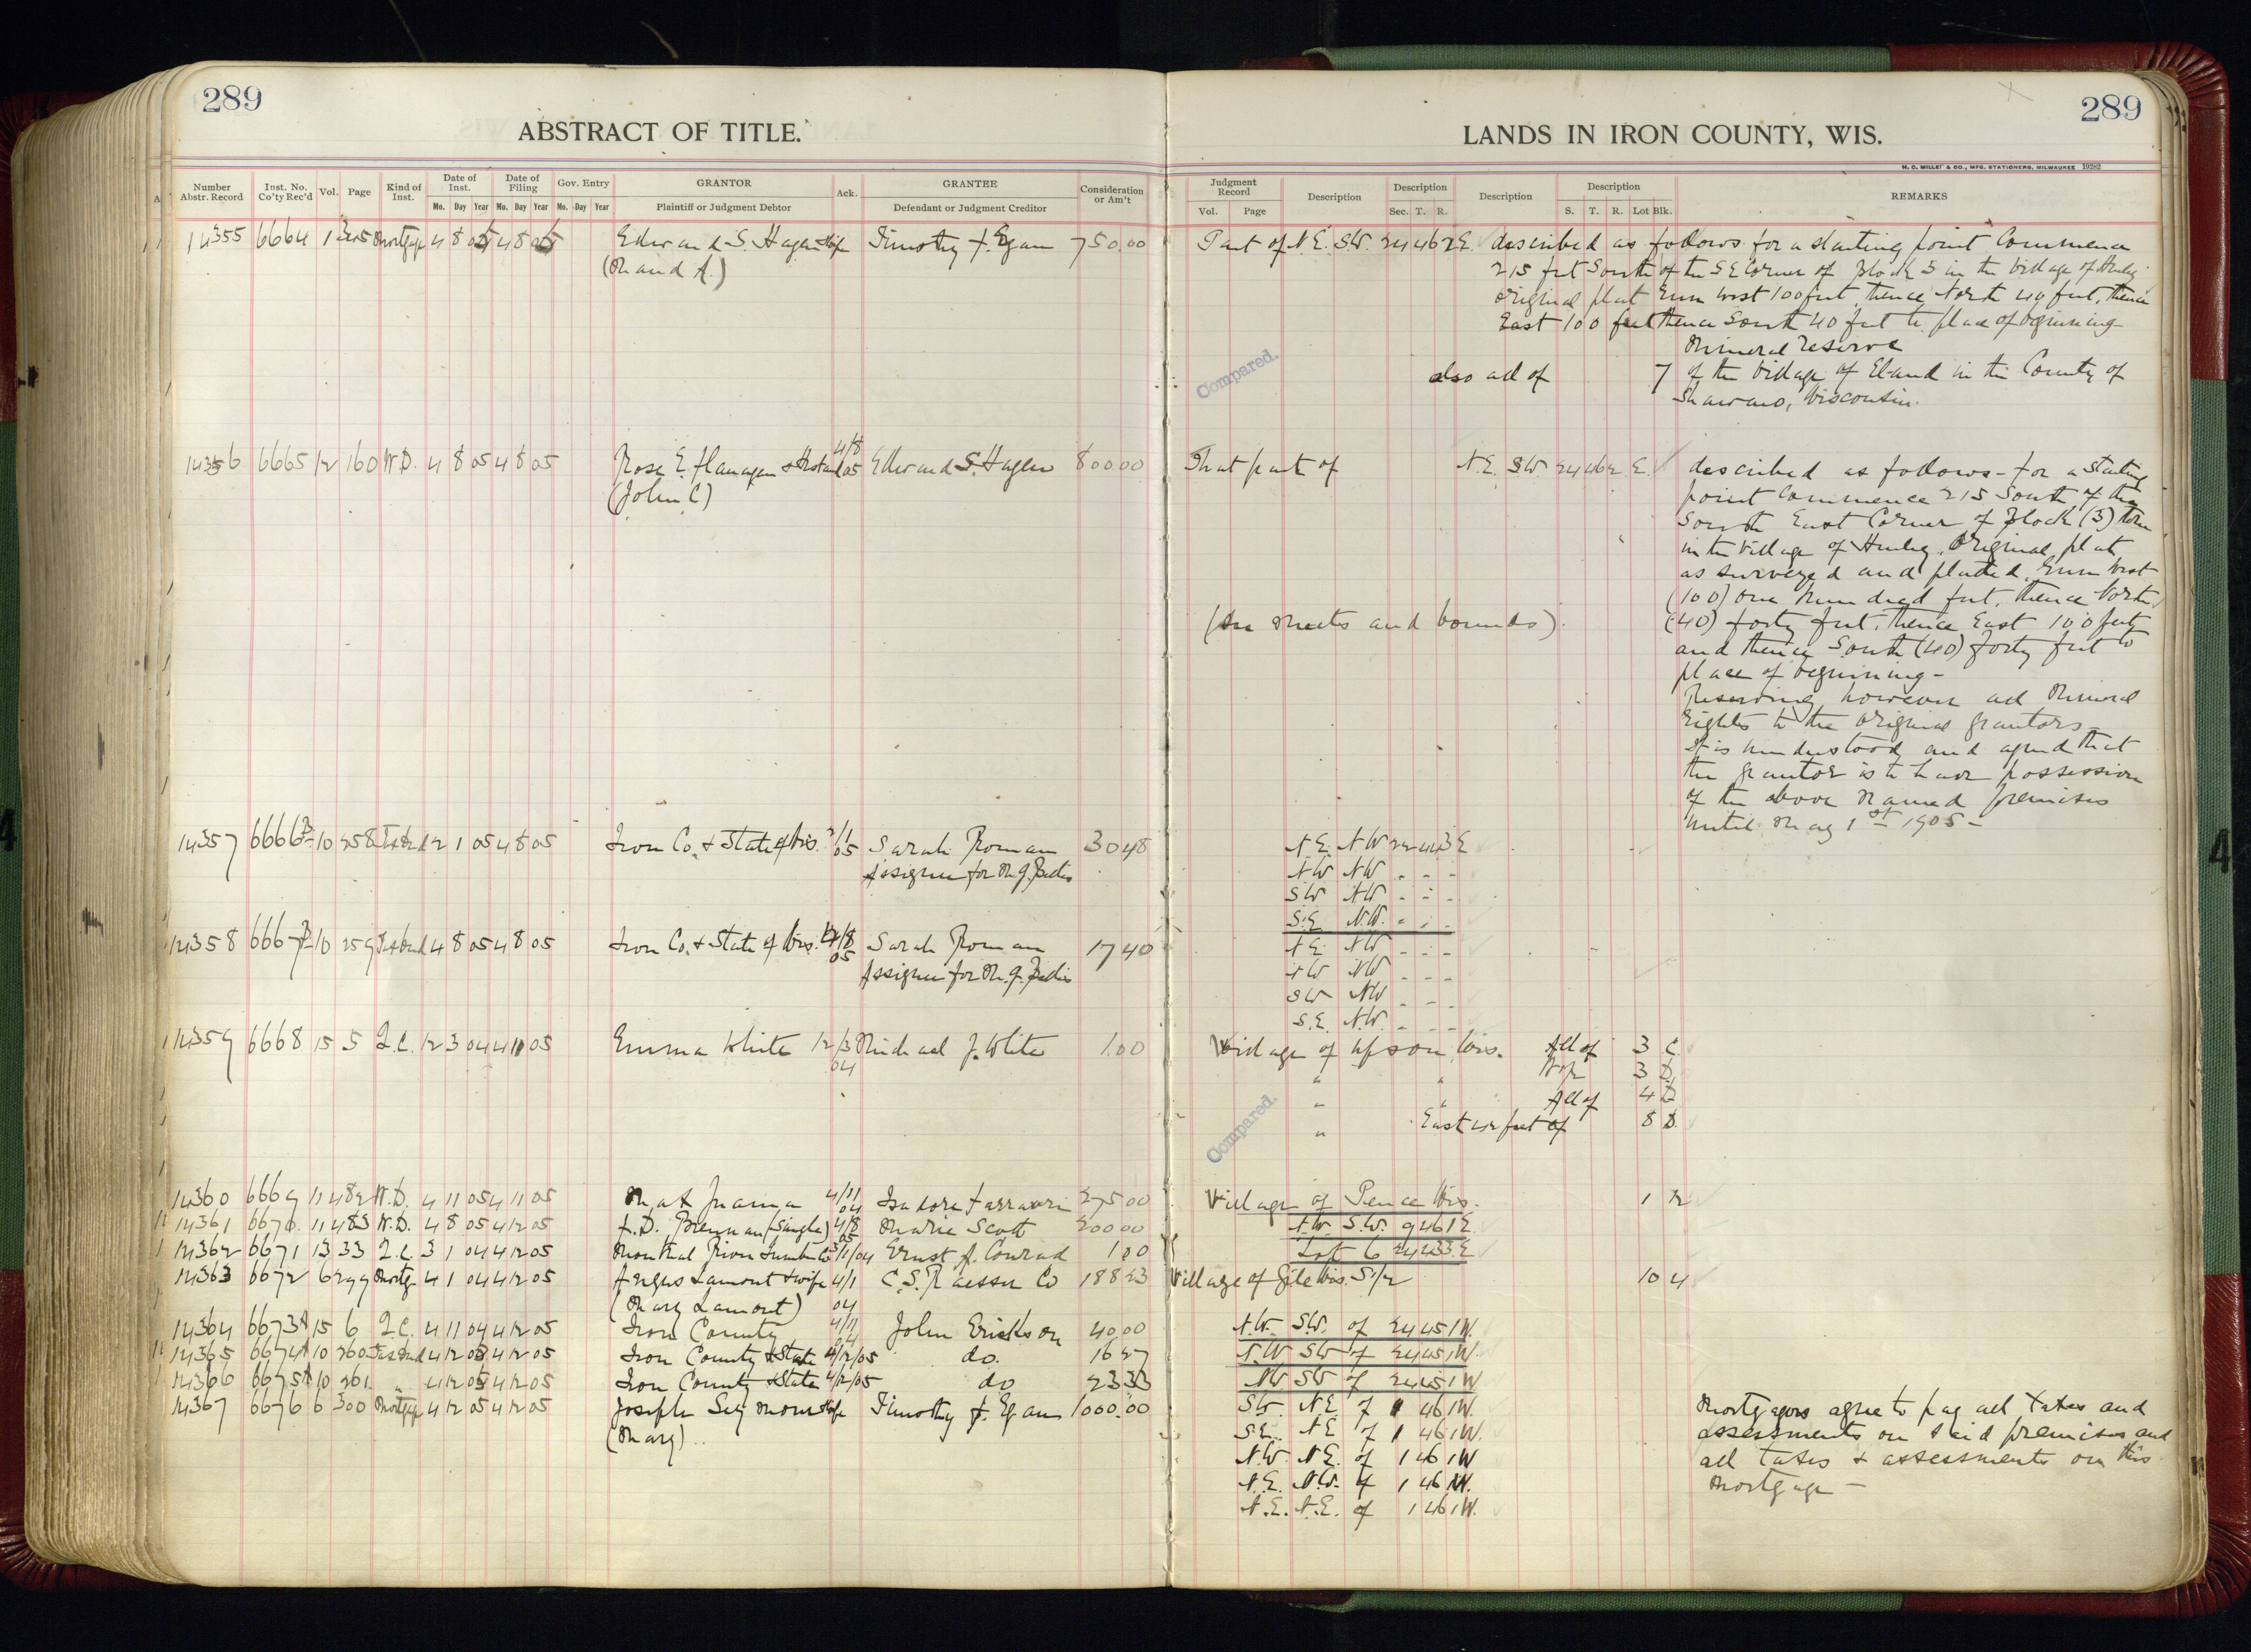 289
ABSTRACT OF TITLE.
Number Abstr. Record Inst. No. Co'ty Rec'd Vol. Page Kind of Inst. Date of Inst. Mo. Day Year Date of Filing Mo. Day Year Gov. Entry Mo. Day Year GRANTOR Plaintiff or Judgment Debtor Ack. GRANTEE Defendant or Judgment Creditor Consideration or Am't
14355 6664 1 345 Mortgage 4 8 05 4 8 05 Edward S. Hagen & wife Timothy F. Egan 750.00
14356 6665 12 160 W.D. 4 8 05 4 8 05 Rose E. Flanagan & Husband 4/8 05 Edward S. Hagen 800 00
(John C)
14357 6666 10 258 Tax Deed 2 1 05 4 8 05 Iron Co. & State of Wis. 2/1 05 Sarah Roman 30 48
Assignee for M. J.
14358 6667 10 259 Tax Deed 4 8 05 4 8 05 Iron Co. & State of Wis. 4/8 05 Sarah Roman 17 40
Assignee for M. J.
14359 6668 15 5 Q.C. 12 3 04 4 11 05 Emma White 12/3 04 Michael J. White 1.00
14360 6669 11 482 W.D. 4 11 05 4 11 05 4/11 04 275 00
14361 6670 11 483 W.D. 4 8 05 4 12 05 F. D. Brennan (Single) 4/8 05 Marie Scott 200 00
14362 6671 13 33 Q.C. 3 1 04 4 12 05 Montreal River Lumber Co 3/1/04 Ernst A. Conrad 1 00
14363 6672 6 299 Mortg. 4 1 04 4 12 05 Angus Lamont & wife 4/1 04 188 23
(Mary Lamont)
14364 6673 15 6 Q.C. 4 11 04 4 12 05 Iron County 4/11 04 John Erickson 40.00
14365 6674 10 260 Tax Deed 4 12 05 4 12 05 Iron County & State 4/12/05 do. 16 27
14366 6675 10 261 " 4 12 05 4 12 05 Iron County & State 4/12/05 do 23 33
14367 6676 6 300 Mortgage 4 12 05 4 12 05 Joseph Seymour & wife Timothy F. Egan 1000.00
(Mary)
289
LANDS IN IRON COUNTY, WIS.
H. C. MILLER & CO., MFG. STATIONERS, MILWAUKEE 19282
Judgment Record Vol. Page Description Description Sec. T. R. Description Description S. T. R. Lot Blk. REMARKS
Part of N.E. S.W. 24 46 2 E. described as follows for a starting point Commence
215 feet South of the S E Corner of Block 3 in the Village of Hurley
original plat Run West 100 feet, thence North 40 feet, thence
East 100 feet thence South 40 feet to place of beginning
Mineral reserve
Compared.
also all of 7 of the Village of Eland in the County of
Shawano, Wisconsin.
That part of N.E. S.W. 24 46 2 E. described as follows - for a starting
point Commence 215 South of the
South East Corner of Block (3) three
in the Village of Hurley, Original plat,
as surveyed and platted, Run West
(100) one hundred feet, thence North
(see meets and bounds) (40) forty feet, thence East 100 feet
and thence South (40) forty feet to
place of beginning -
Reserving however all Mineral
Rights to the original grantors
It is understood and agreed that
the grantor is to have possession
of the above named premises
until May 1st 1905 -
N.E. N.W. 22 44 3 E
N.W. N.W. - - -
S.W. N.W. - - -
S.E. N.W. - - -
N.E. N.W. - - -
N.W. N.W. - - -
S.W. N.W. - - -
S.E. N.W. - - -
Village of Upson, Wis. All of 3 C.
" " N 1/2 3 D.
" " All of 4 D
" East 42 feet of 8 D.
Compared.
Village of Pence Wis. 1 12
N.W. S.W. 9 46 1 E.
Lot 6 24 43 3 E
Village of Gile Wis. S 1/2 10 4
N.W. S.W. of 24 45 1 W.
N.W. S.W. of 24 45 1 W.
N.W. S.W. of 24 45 1 W
S.W. N.E. of 1 46 1 W.
S.E. N.E. of 1 46 1 W.
N.W. N.E. of 1 46 1 W
N.E. N.W. of 1 46 1 W.
N.E. N.E. of 1 46 1 W.
Mortgagors agree to pay all taxes and
assessments on said premises and
all taxes & assessments on this
Mortgage -